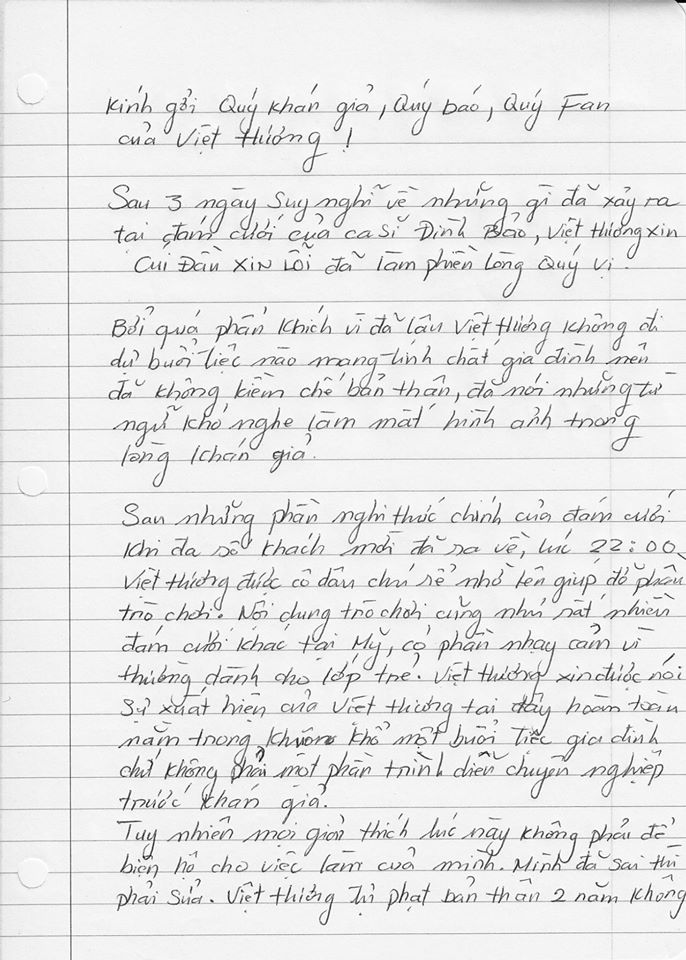 Kính gởi Quý khán giả, Quý báo, Quý Fan
của Việt Hương !
Sau 3 ngày Suy nghĩ về những gì đã xảy ra
tại đám cưới của ca sĩ Đình Bảo, Việt Hương xin
Cúi Đầu XIN LỖI đã làm phiền lòng Quý vị.
Bởi quá phấn khích vì đã lâu Việt Hương không đi
dự buổi tiệc nào mang tính chất gia đình nên
đã không kiềm chế bản thân, đã nói những từ
ngữ khó nghe làm mất hình ảnh trong
lòng khán giả.
Sau những phần nghi thức chính của đám cưới
khi đa số khách mời đã ra về, lúc 22:00
Việt Hương được cô dâu chú rể nhờ lên giúp đỡ phần
trò chơi. Nội dung trò chơi cũng như rất nhiều
đám cưới khác tại Mỹ, có phần nhạy cảm vì
thường dành cho lớp trẻ. Việt Hương xin được nói
sự xuất hiện của Việt Hương tại đây hoàn toàn
nằm trong khuôn khổ một buổi tiệc gia đình
chứ không phải một phần trình diễn chuyên nghiệp
trước khán giả.
Tuy nhiên mọi giải thích lúc này không phải để
biện hộ cho việc làm của mình. Mình đã sai thì
phải sửa. Việt Hương tự phạt bản thân 2 năm không